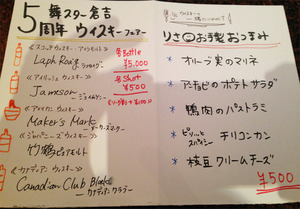 5周年
舞スター倉吉
ウィスキーフェアー
《スコッチウィスキー・アイラモルト》
Laphroaig ラフロイグ
《アイリッシュウィスキー》
Jameson ジェイムソン
《アメリカンウィスキー》
Maker's Mark メーカーズマーク
《ジャパニーズウィスキー》
竹鶴ピュアモルト
《カナディアンウィスキー》
Canadian Club Black
カナディアンクラブ
Bottle
¥5,000
Shot
¥500
お手製おつまみ
* オリーブ実のマリネ
* アンチョビのポテトサラダ
* 鴨肉のパストラミ
* ピリッとスパイシー チリコンカン
* 枝豆クリームチーズ
¥500